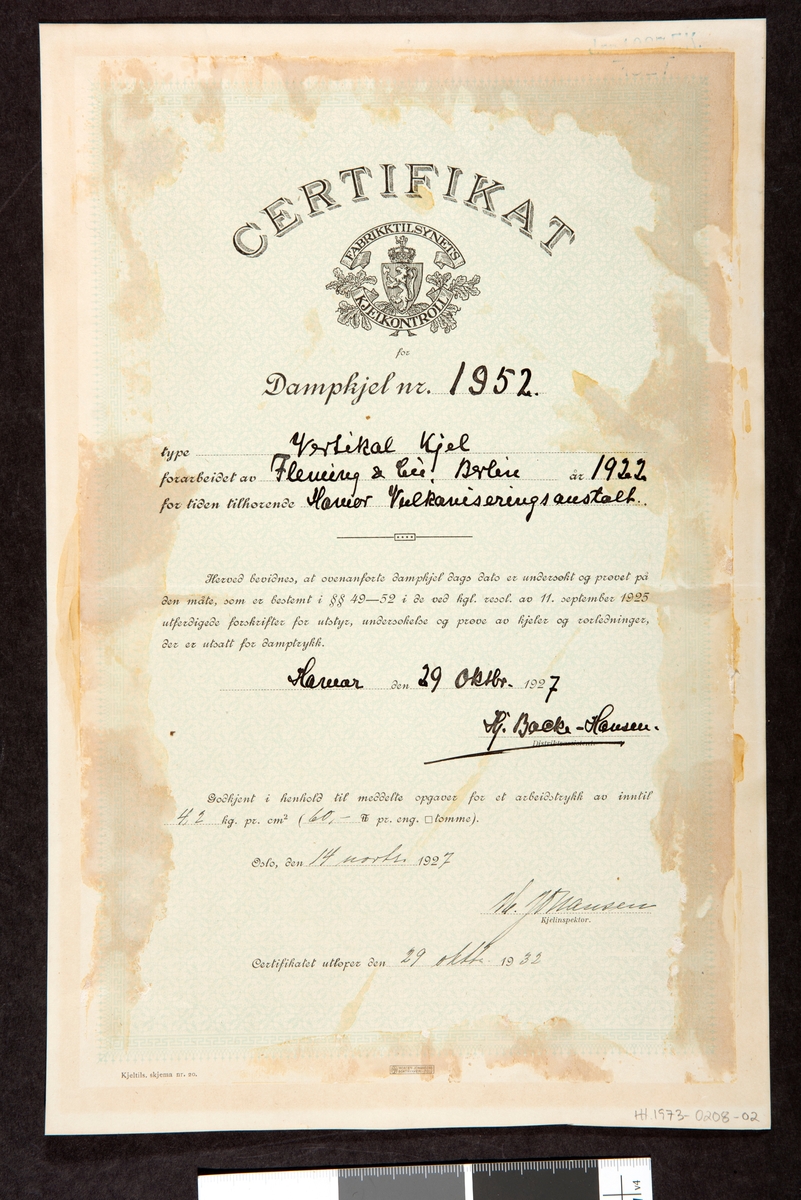 CERTIFIKAT
FABRIKKTILSYNETS
KJELKONTROLL
for
Dampkjel nr. 1952.
type Vertikal Kjel
forarbeidet av Fleming & Cie. Berlin år 1922
for tiden tilhørende Hamar Vulkaniseringsanstalt.
Herved bevidnes, at ovenanførte dampkjel dags dato er undersøkt og prøvet på
den måte, som er bestemt i §§ 49—52 i de ved kgl. resol. av 11. september 1925
utferdigede forskrifter for utstyr, undersøkelse og prøve av kjeler og rørledninger,
der er utsatt for damptrykk.
Hamar den 29 Oktbr. 1927
Hj. Backe-Hansen.
Godkjent i henhold til meddelte opgaver for et arbeidstrykk av inntil
4.2 kg. pr. cm² (60,- ℔ pr. eng. □tomme).
Oslo, den 14 novbr. 1927
Johansen
Kjelinspektør.
Certifikatet utløper den 29 oktbr. 1932
Kjeltils. skjema nr. 20.
HH 1973-0208-02
v4